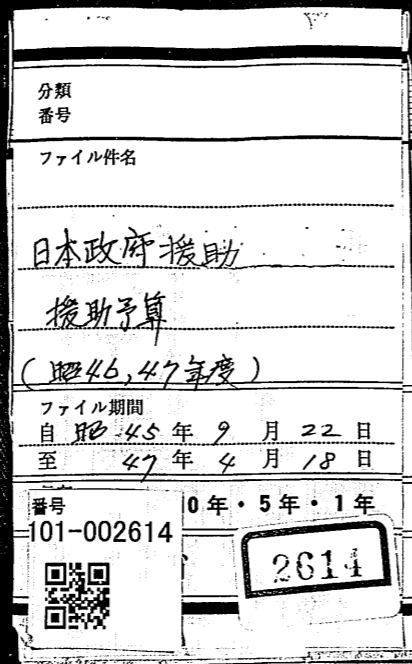 分類
番号
ファイル件名
日本政府援助
援助予算
(昭46,47年度)
ファイル期間
自 昭45年9月22日
至 47年4月18日
0年・5年・1年
番号
101-002614
2614